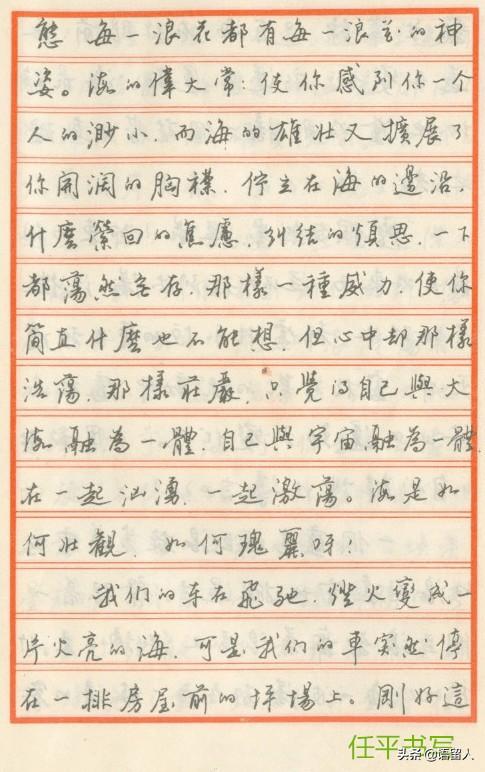 態 每一浪花都有每一浪花的神
姿。海的偉大常使你感到你一个
人的渺小.而海的雄壯又擴展了
你開闊的胸襟.佇立在海的邊沿.
什麼縈回的焦慮.糾结的煩思.一下
都蕩然無存.那樣一種威力使你
簡直什麼也不能想.但心中却那樣
浩蕩.那樣莊嚴.只覺得自己與大
海融為一體.自己與宇宙融為一體
在一起汹湧.一起激蕩。海是如
何壯觀.如何瑰麗呀!
我们的车在飛馳.燈火變成一
片火亮的海.可是我们的車突然停
在一排房屋前的坪場上。剛好這
任平书写
头条 @语留人